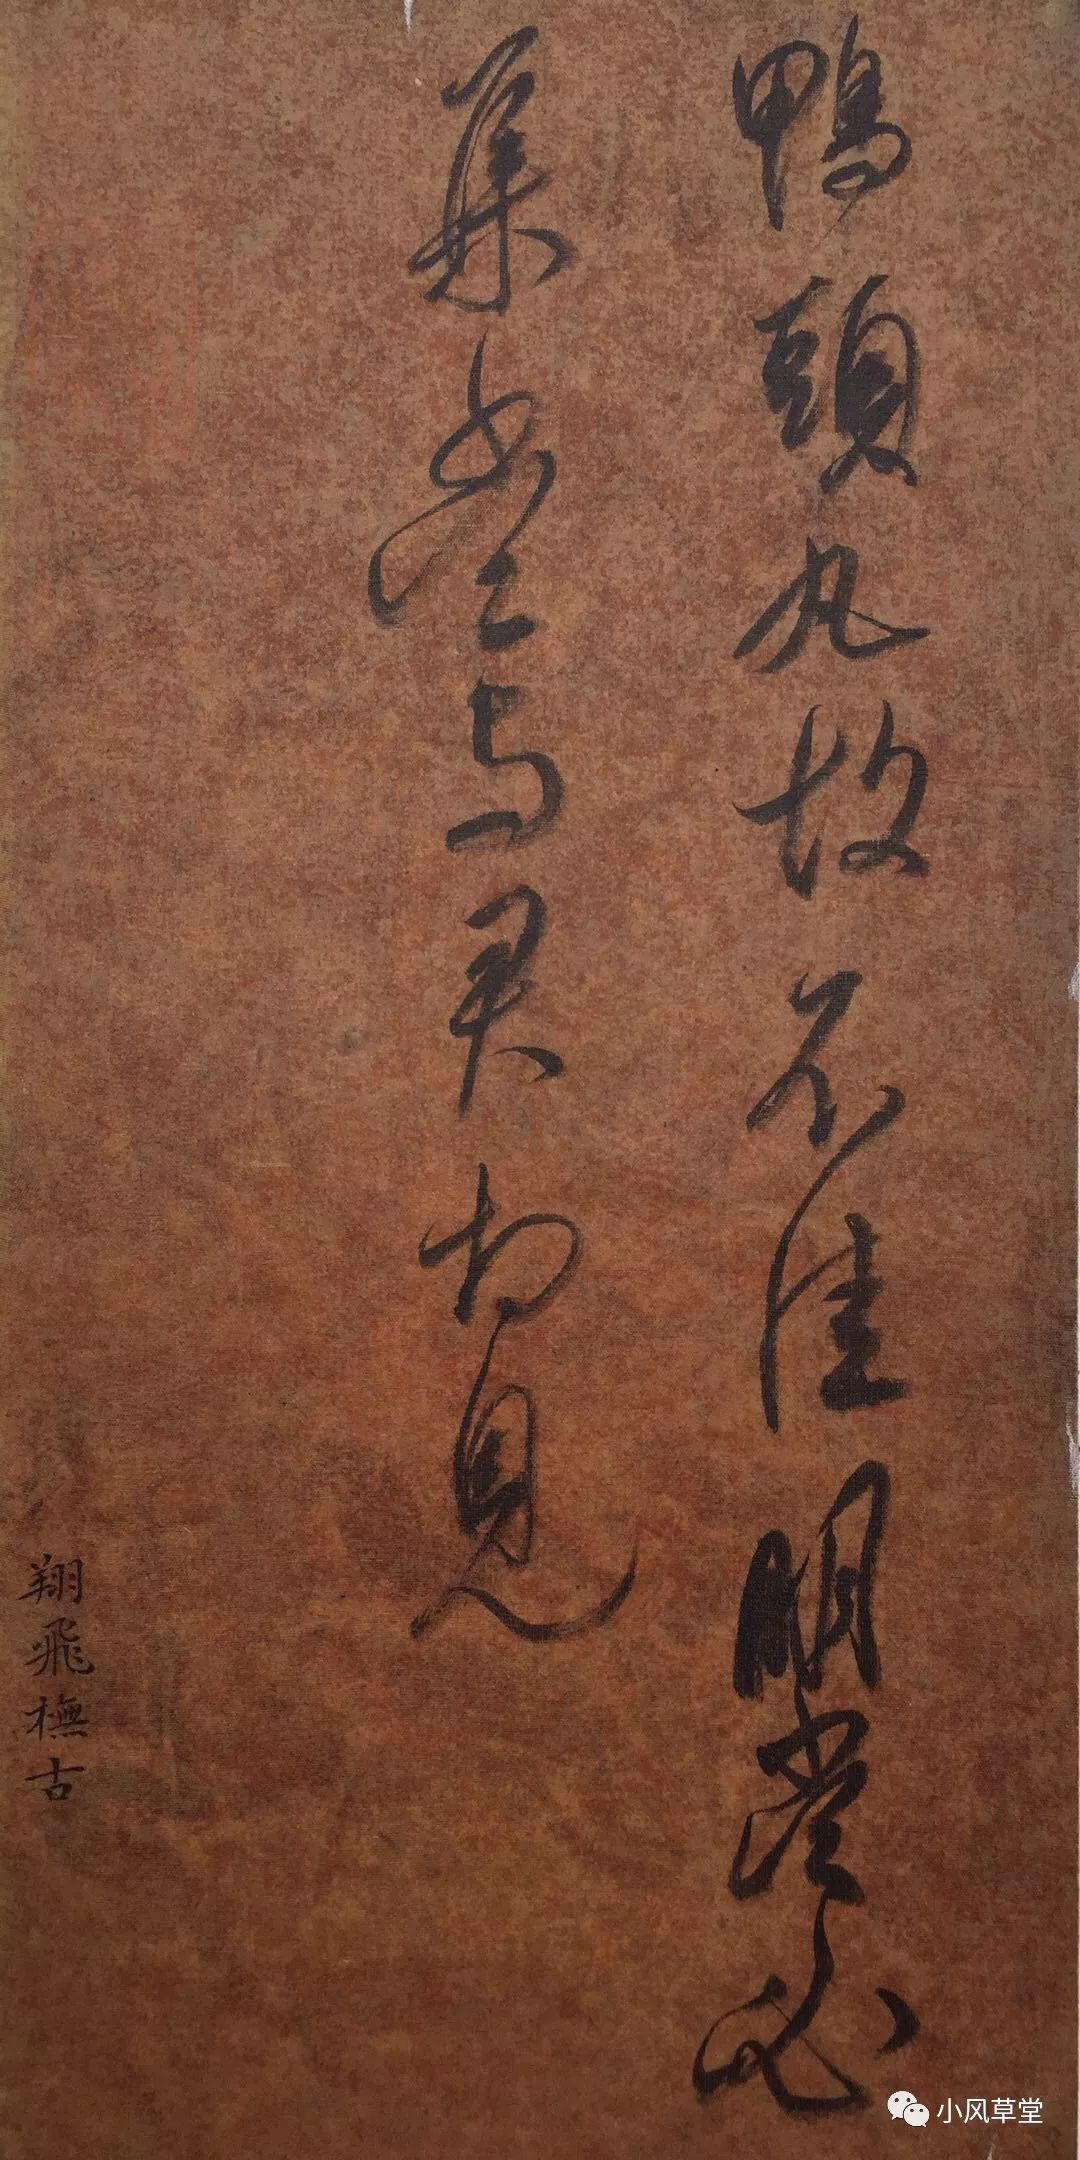 鴨頭丸故不佳明當必
集當與君相見
翔飛橅古
小风草堂